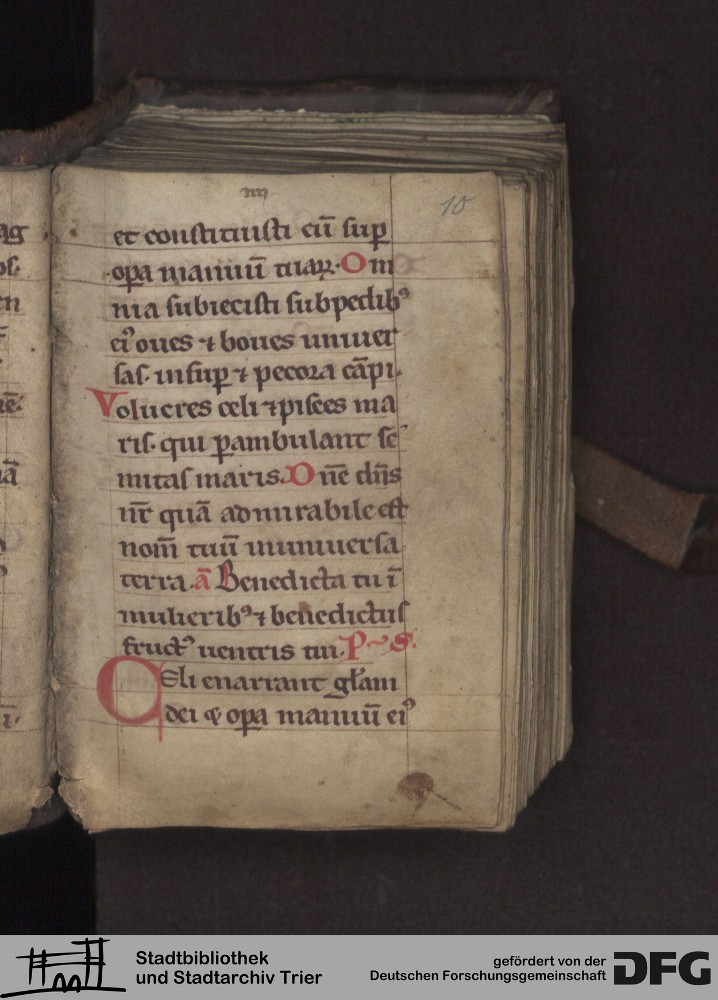 iiii
10
et constituisti eū sup
opa manuū tuaꝝ. Om
nia subiecisti sub pedibꝰ
eiꝰ oues ⁊ boues uniuer
sas. insup ⁊ pecora cāpi.
Volucres celi ⁊ pisces ma
ris. qui pambulant se
mitas maris. Dn̄e dn̄s
nr̄ quā admirabile est
nom̄ tuū in uniuersa
terra. ā Benedicta tu ī
mulieribꝰ ⁊ benedictus
fructꝰ uentris tui. P S.
Celi enarrant gl̄am
dei ⁊ opa manuū eiꝰ
Stadtbibliothek
und Stadtarchiv Trier
gefördert von der
Deutschen Forschungsgemeinschaft
DFG